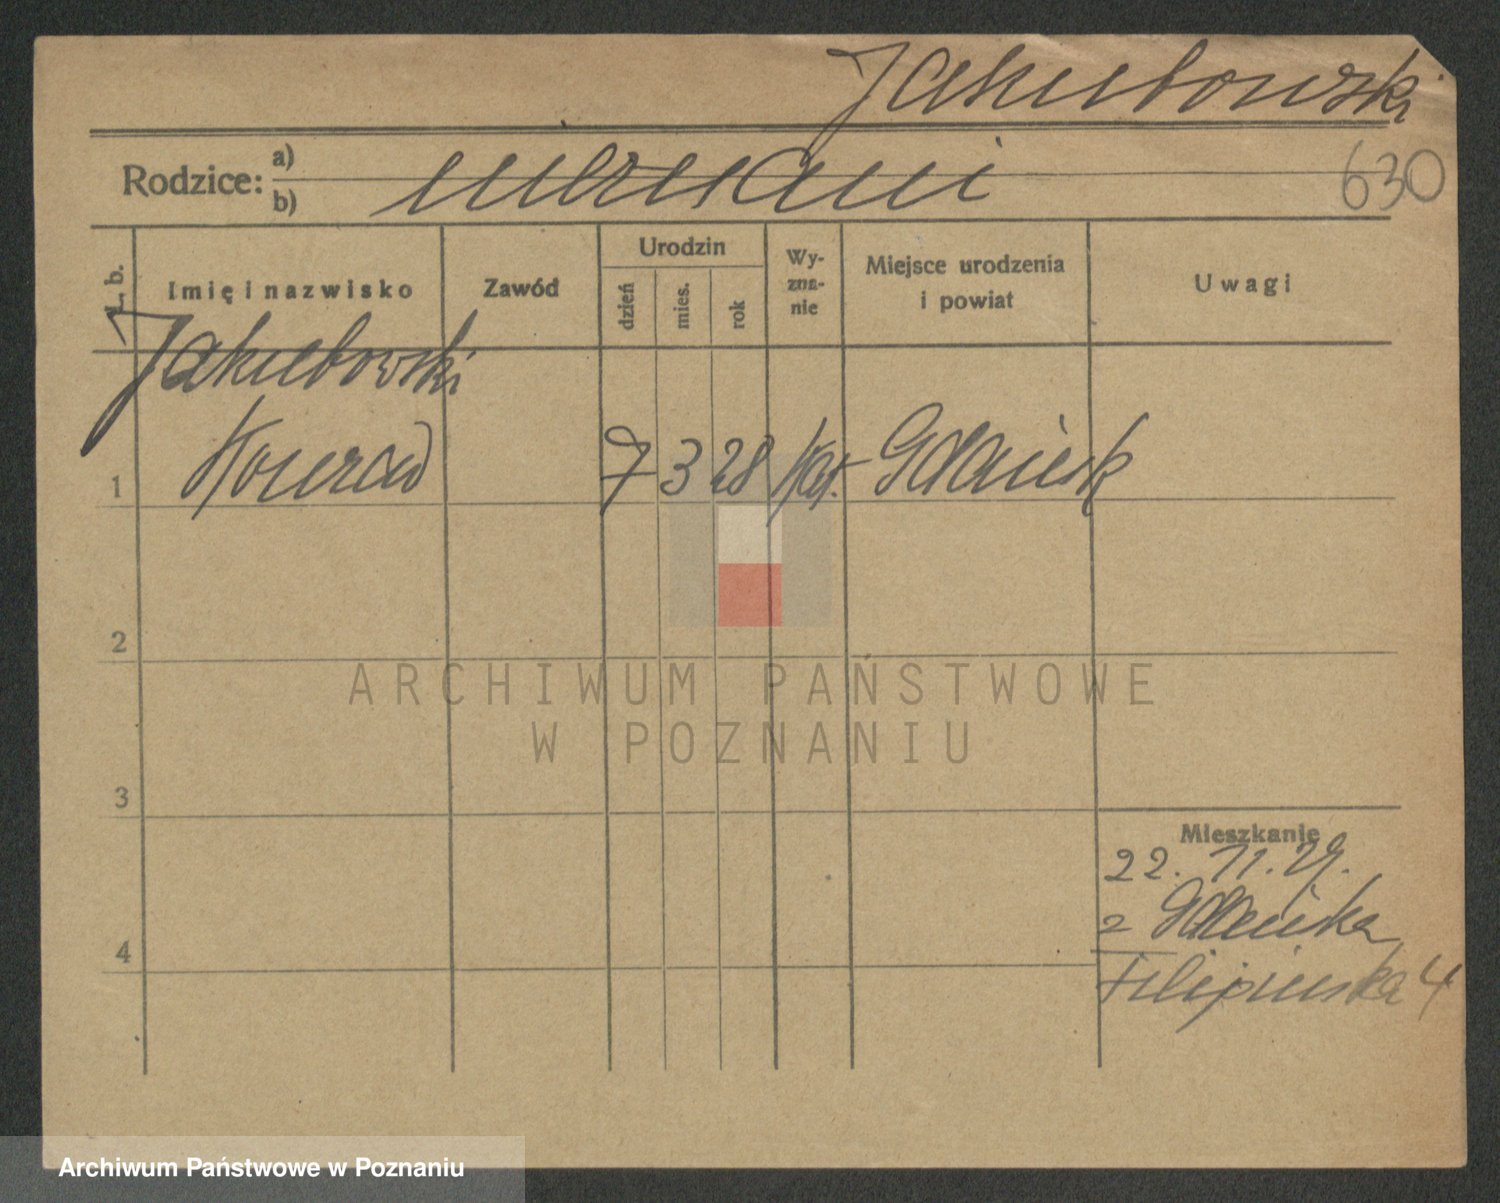 Jakubowski
Rodzice: a) b) nieznani
630
L. b. Imię i nazwisko Zawód Urodzin dzień mies. rok Wy-zna-nie Miejsce urodzenia i powiat Uwagi
Jakubowski
1 Konrad 7 3 28 kat. Gdańsk
2
ARCHIWUM PAŃSTWOWE
W POZNANIU
3
Mieszkanie
22. 11. 29.
z Gdańska
4
Filipińska 4
Archiwum Państwowe w Poznaniu